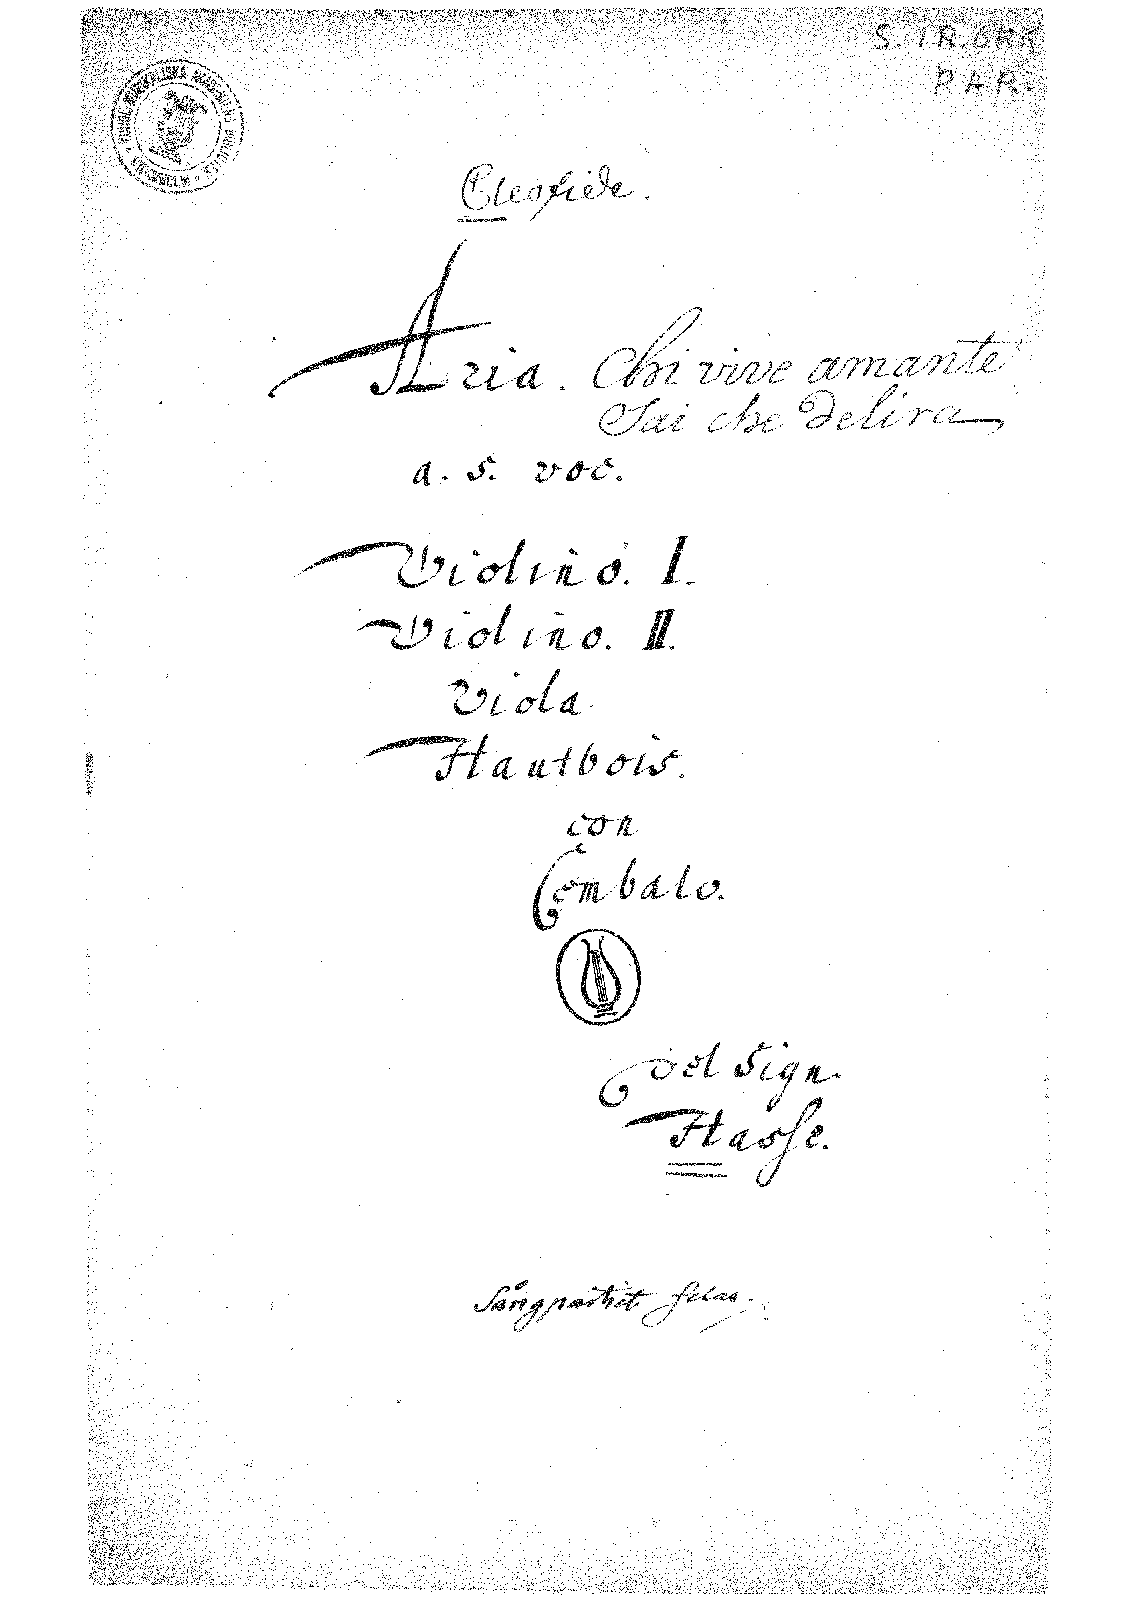 S. I R. ORK
PAR.
Cleofide.
Aria. Chi vive amante
Sai che delira
a. S. voc.
Violino. I.
Violino. II.
Viola
Hautbois.
con
Cembalo.
del Sign.
Hasse.
Sångpartiet felas.